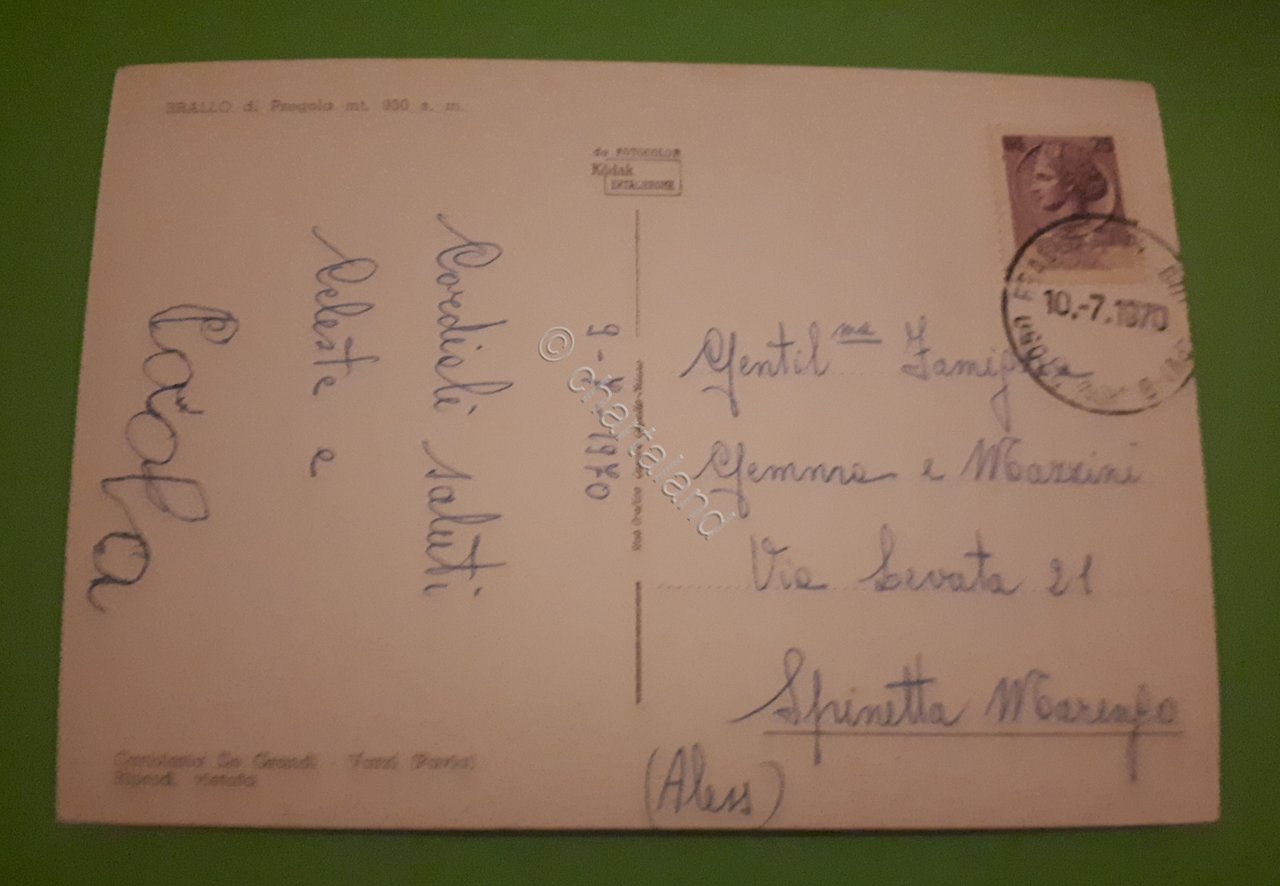 BRALLO di Pregola mt. 950 s. m.
da FOTOCOLOR
Kodak
EKTACHROME
10.-7.1970
9-7-1970
Cordiali saluti
Celeste e
Carla
Gentil ma Famiglia
Gemma e Mazzini
Via Levata 21
Spinetta Marengo
(Aless)
Cartoleria De Grandi - Varzi (Pavia)
Riprod. vietata
© chartaland